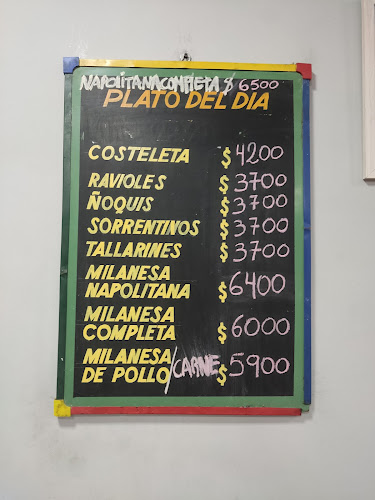 NAPOLITANA COMPLETA $ 6500
PLATO DEL DIA
COSTELETA $ 4200
RAVIOLES $ 3700
ÑOQUIS $ 3700
SORRENTINOS $ 3700
TALLARINES $ 3700
MILANESA
NAPOLITANA $ 6400
MILANESA
COMPLETA $ 6000
MILANESA
DE POLLO /CARNE $ 5900